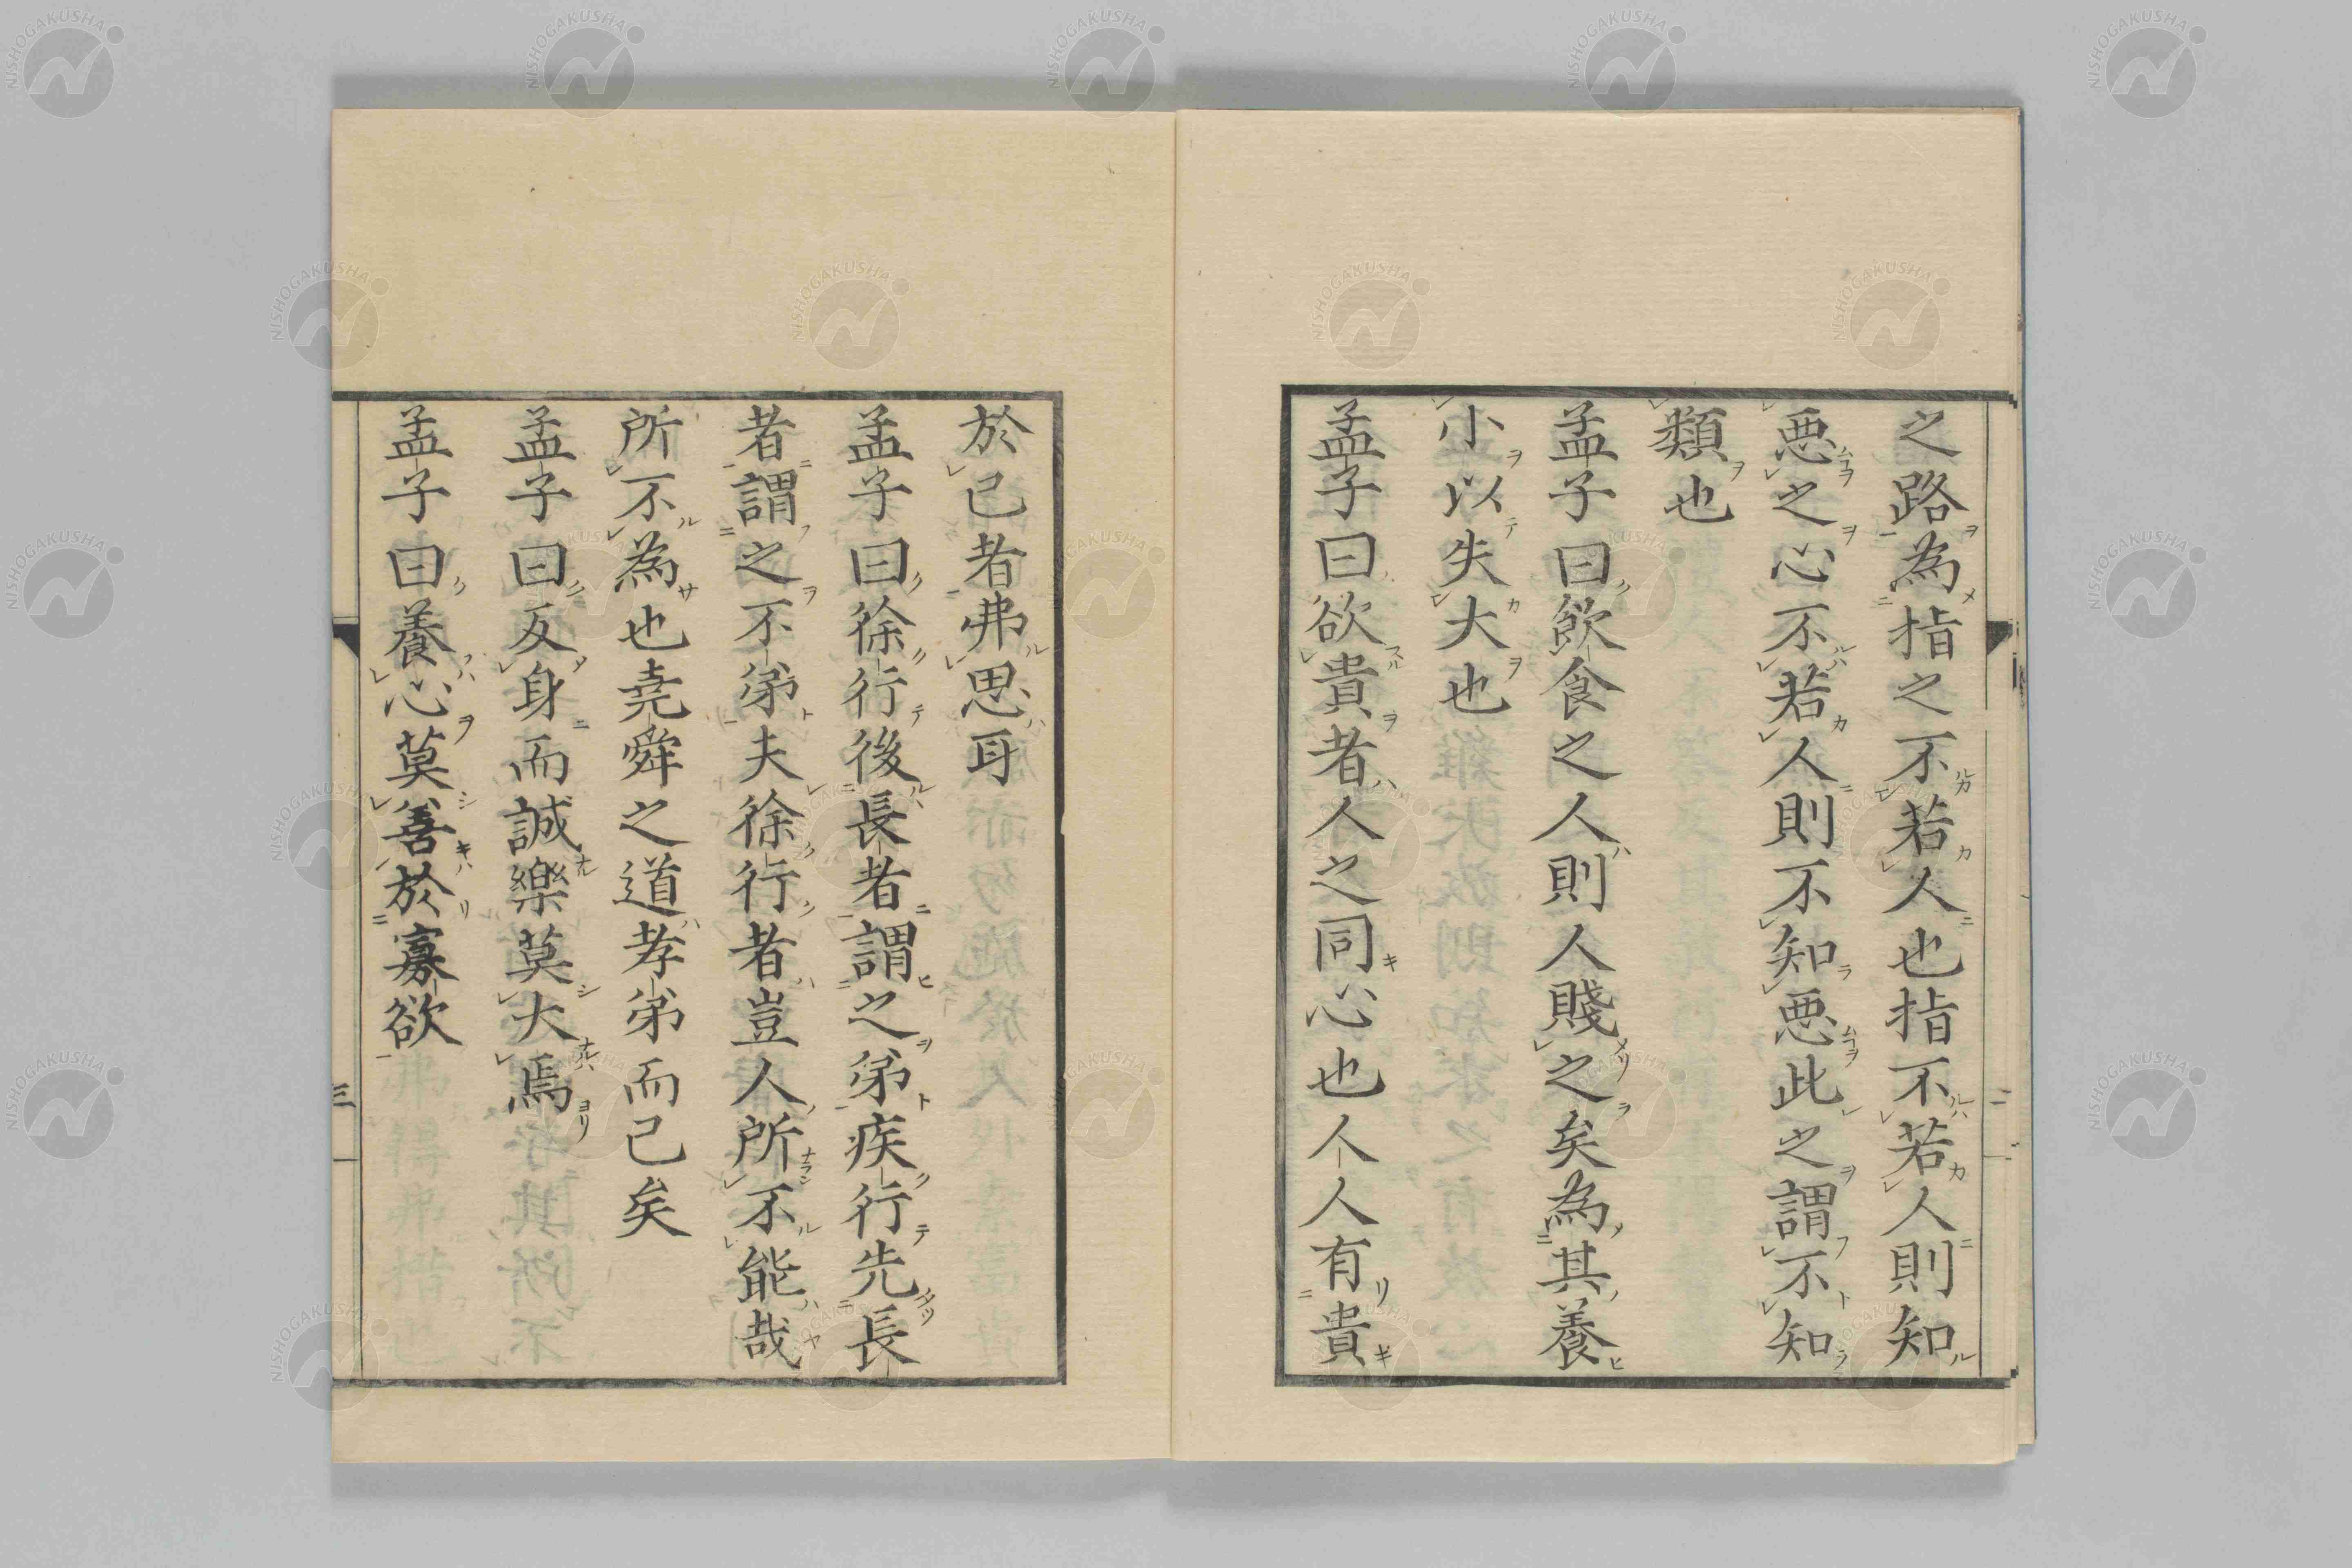 之路為指之不若人也指不若人則知
悪之心不若人則不知悪此之謂不知
類也
孟子曰飲食之人則人賤之矣為其養
小以失大也
孟子曰欲貴者人之同心也人人有貴
於己者弗思耳
孟子曰徐行後長者謂之弟疾行先長
者謂之不弟夫徐行者豈人所不能哉
所不為也堯舜之道孝弟而已矣
孟子曰反身而誠樂莫大焉
孟子曰養心莫善於寡欲
三
NISHOGAKUSHA